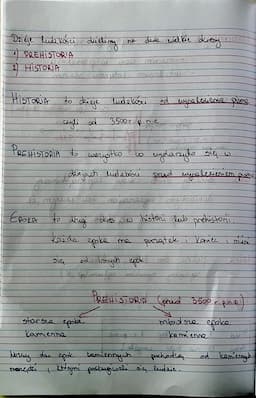 Dzieje ludzkości dzielimy na dwie wielkie okresy
1) PREHISTORIA
2) HISTORIA
HISTORIA to dzieje ludzkości od wynalezienia pisma
czyli od 3500 r. p.n.e.
PREHISTORIA to wszystko co wydarzyło się w
dziejach ludzkości przed wynalezieniem pisma
EPOKA to długi okres w historii lub prehistorii
każda epoka ma początek i koniec i różni
się od innych epok
PREHISTORIA (przed 3500 r. p.n.e.)
starsza epoka młodsza epoka
kamienna kamienna
Nazwy dwu epok kamiennych pochodzą od kamiennych
narzędzi, którymi posługiwali się ludzie.